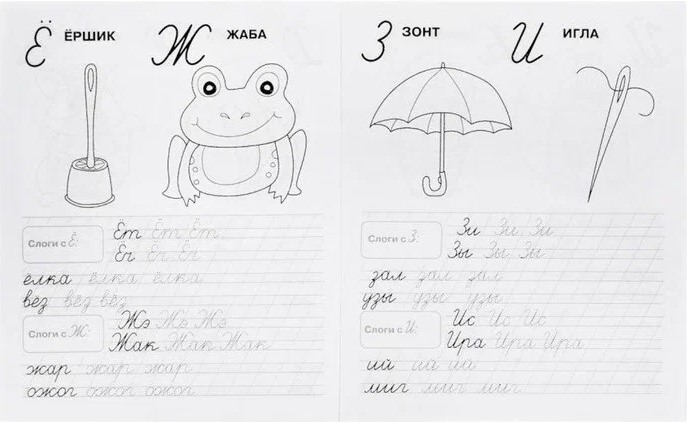 Ё ЁРШИК
Ж ЖАБА
Слоги с Ё:
Ёт Ёт Ёт
Ёг Ёг Ёг
ёлка ёлка ёлка
вёз вёз вёз
Слоги с Ж:
Жэ Жэ Жэ
Жак Жак Жак
жар жар жар
ожог ожог ожог
З ЗОНТ
И ИГЛА
Слоги с З:
Зи Зи Зи
Зы Зы Зы
зал зал зал
узы узы узы
Слоги с И:
Ис Ис Ис
Ира Ира Ира
миг миг миг